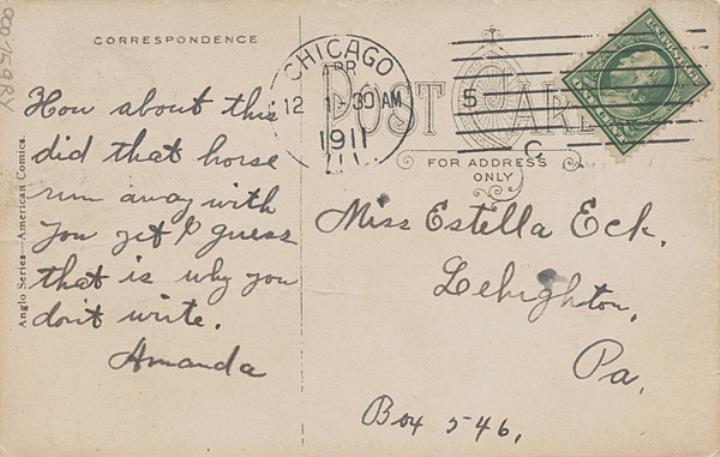 OCD 759RY
CORRESPONDENCE
How about this
did that horse
run away with
you yet I guess
that is why you
don't write.
Amanda
Anglo Series—American Comics.
CHICAGO
APR
12 1-30 AM
1911
ILL.
5
C
POST CARD
FOR ADDRESS
ONLY
Miss Estella Eck.
Lehighton,
Pa,
Box 546,